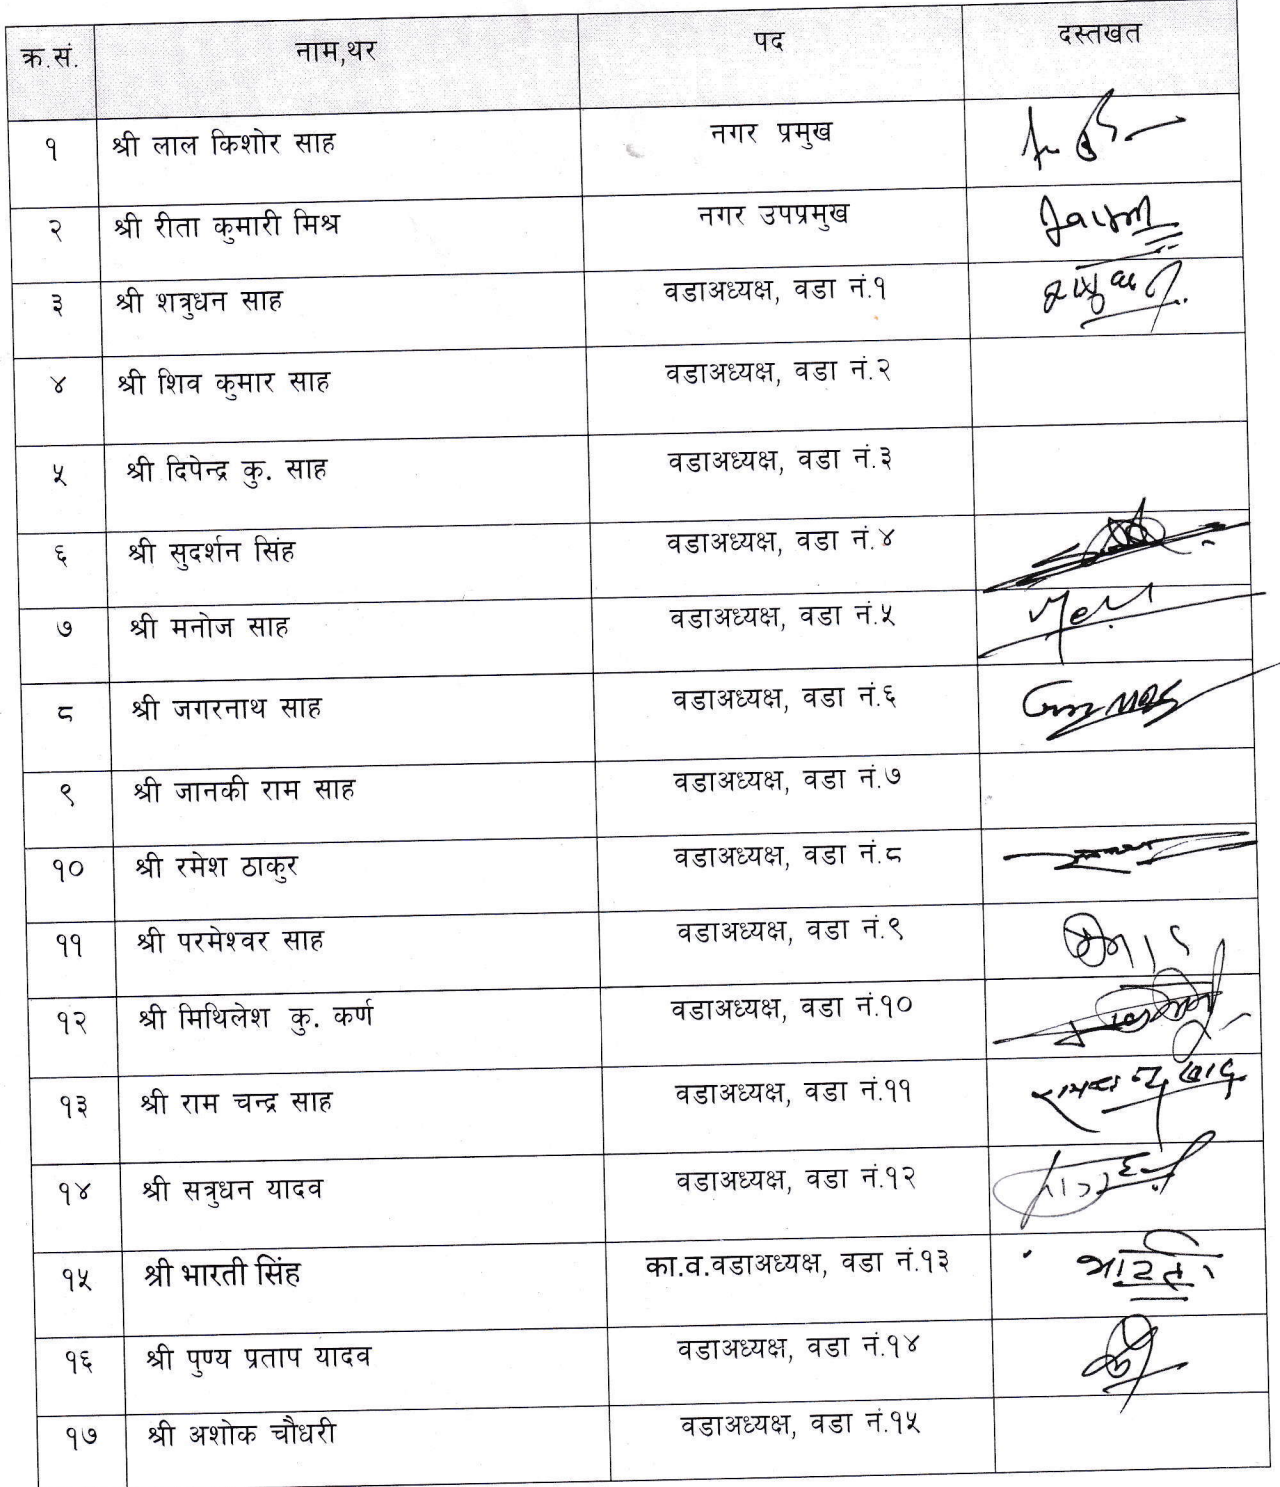 क्र.सं. नाम,थर पद दस्तखत
१ श्री लाल किशोर साह नगर प्रमुख
२ श्री रीता कुमारी मिश्र नगर उपप्रमुख
३ श्री शत्रुधन साह वडाअध्यक्ष, वडा नं.१
४ श्री शिव कुमार साह वडाअध्यक्ष, वडा नं.२
५ श्री दिपेन्द्र कु. साह वडाअध्यक्ष, वडा नं.३
६ श्री सुदर्शन सिंह वडाअध्यक्ष, वडा नं.४
७ श्री मनोज साह वडाअध्यक्ष, वडा नं.५
८ श्री जगरनाथ साह वडाअध्यक्ष, वडा नं.६
९ श्री जानकी राम साह वडाअध्यक्ष, वडा नं.७
१० श्री रमेश ठाकुर वडाअध्यक्ष, वडा नं.८
११ श्री परमेश्वर साह वडाअध्यक्ष, वडा नं.९
१२ श्री मिथिलेश कु. कर्ण वडाअध्यक्ष, वडा नं.१०
१३ श्री राम चन्द्र साह वडाअध्यक्ष, वडा नं.११
१४ श्री सत्रुधन यादव वडाअध्यक्ष, वडा नं.१२
१५ श्री भारती सिंह का.व.वडाअध्यक्ष, वडा नं.१३ भारती
१६ श्री पुण्य प्रताप यादव वडाअध्यक्ष, वडा नं.१४
१७ श्री अशोक चौधरी वडाअध्यक्ष, वडा नं.१५